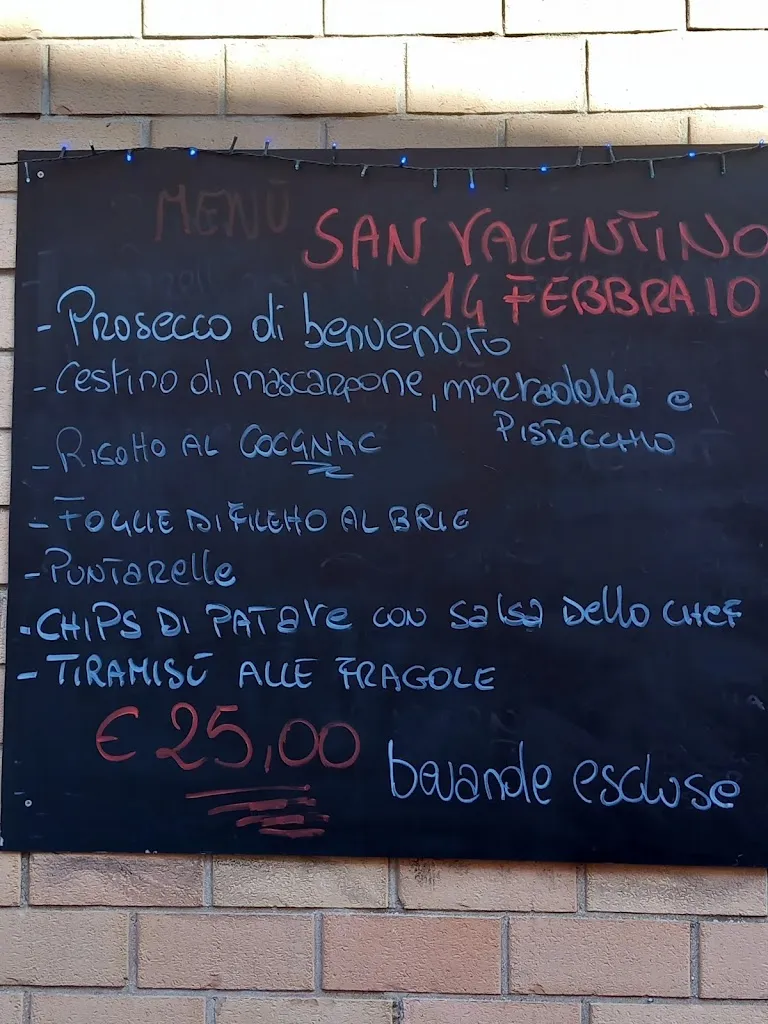 MENÙ
SAN VALENTINO
14 FEBBRAIO
- Prosecco di benvenuto
- Cestino di mascarpone, mortadella e
PISTACCHIO
- RISOTTO AL COCGNAC
- FOGLIE DI FILETTO AL BRIE
- PUNTARELLE
- CHIPS DI PATATE CON SALSA DELLO CHEF
- TIRAMISÙ ALLE FRAGOLE
€ 25,00
bevande escluse